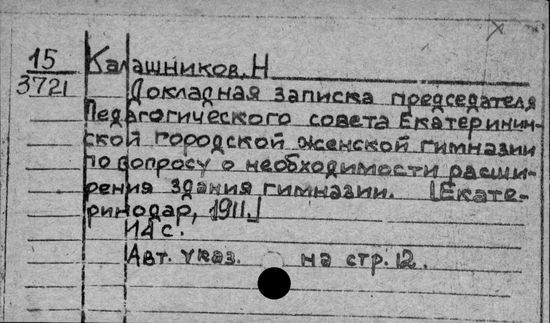 15
3721
Калашников, Н
Докладная записка председателя
Педагогического совета Екатеринин-
ской городской женской гимназии
по вопросу о необходимости расши-
рения здания гимназии. [Екате-
ринодар, 1911.]
14 с.
Авт. указ. на стр. 12.